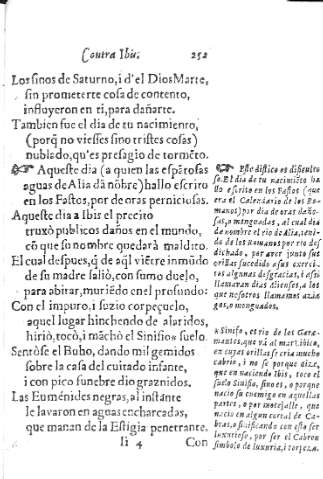 Contra Ibin. 252
Los sinos de Saturno, i d'el Dios Marte,
sin prometerte cosa de contento,
influyeron en ti, para dañarte.
Tambien fue el dia de tu nacimiento,
(porq̃ no viesses sino tristes cosas)
nublado, qu'es presagio de tormẽto.
☞ Aqueste dia (a quien las espãtosas
aguas de Alia dã nõbre) hallo escrito
en los Fastos, por de oras perniciosas.
Aqueste dia a Ibis el precito
truxò publicos daños en el mundo,
cõ que su nombre quedarà maldito.
El cual despues, q̃ de aq̃l viẽtre inmũdo
de su madre saliò, con sumo duelo,
para abitar, muriẽdo en el profundo:
Con el impuro, i suzio corpeçuelo,
aquel lugar hinchendo de alaridos,
hiriò, tocò, i mãchò el Sinisio* suelo.
Sentòse el Buho, dando mil gemidos
sobre la casa del cuitado infante,
i con pico funebre dio graznidos.
Las Eumẽnides negras, al instante
le lavaron en aguas encharcadas,
que manan de la Estigia penetrante.
Ii 4 Con
☞ Este distico es dificulto
so. El dia de tu nacimiẽto ha
llo escrito en los Fastos (que
era el Calendario de los Ro-
manos) por dia de oras daño-
sas, menguadas, al cual dia
da nombre el rio de Alia, teni-
do de los Romanos por rio des
dichado, por aver junto sus
orillas sucedido a sus exerci-
tos algunas desgracias, i assi
llamaran dias Alienses, a los
que nosotros llamamos azia
gos, o menguados.
* Sinifo, es rio de los Gara-
mantes, que vi al mar Libico,
en cuyas orillas se cria mucho
cabrio, i no se porque dize,
que en naciendo Ibis, toco el
suelo Sinisio, sino es, o porque
nacio su enemigo en aquellas
partes, o por motejalle, que
nacio en algun corral de Ca-
bras, o sinificando con esto ser
luxurioso, por ser el Cabron
simbolo de luxuria, i torpeza.